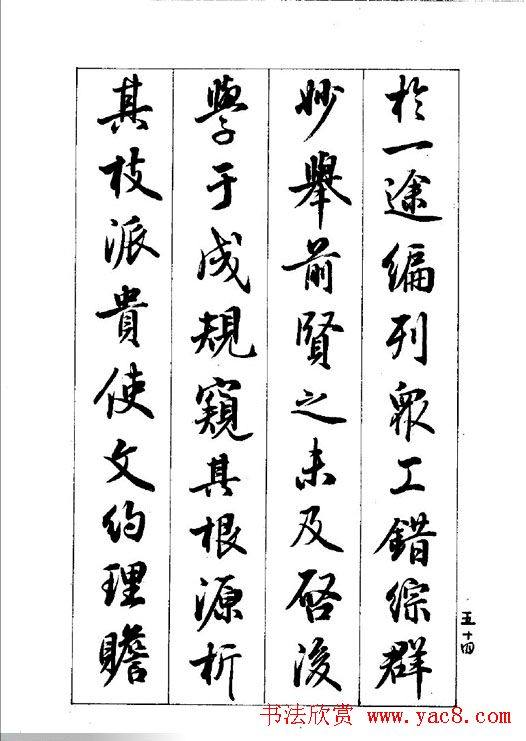 於一途編列眾工錯綜群
妙舉前賢之未及啓後
學于成規窺其根源析
其枝派貴使文約理贍
五十四
书法欣赏 www.yac8.com